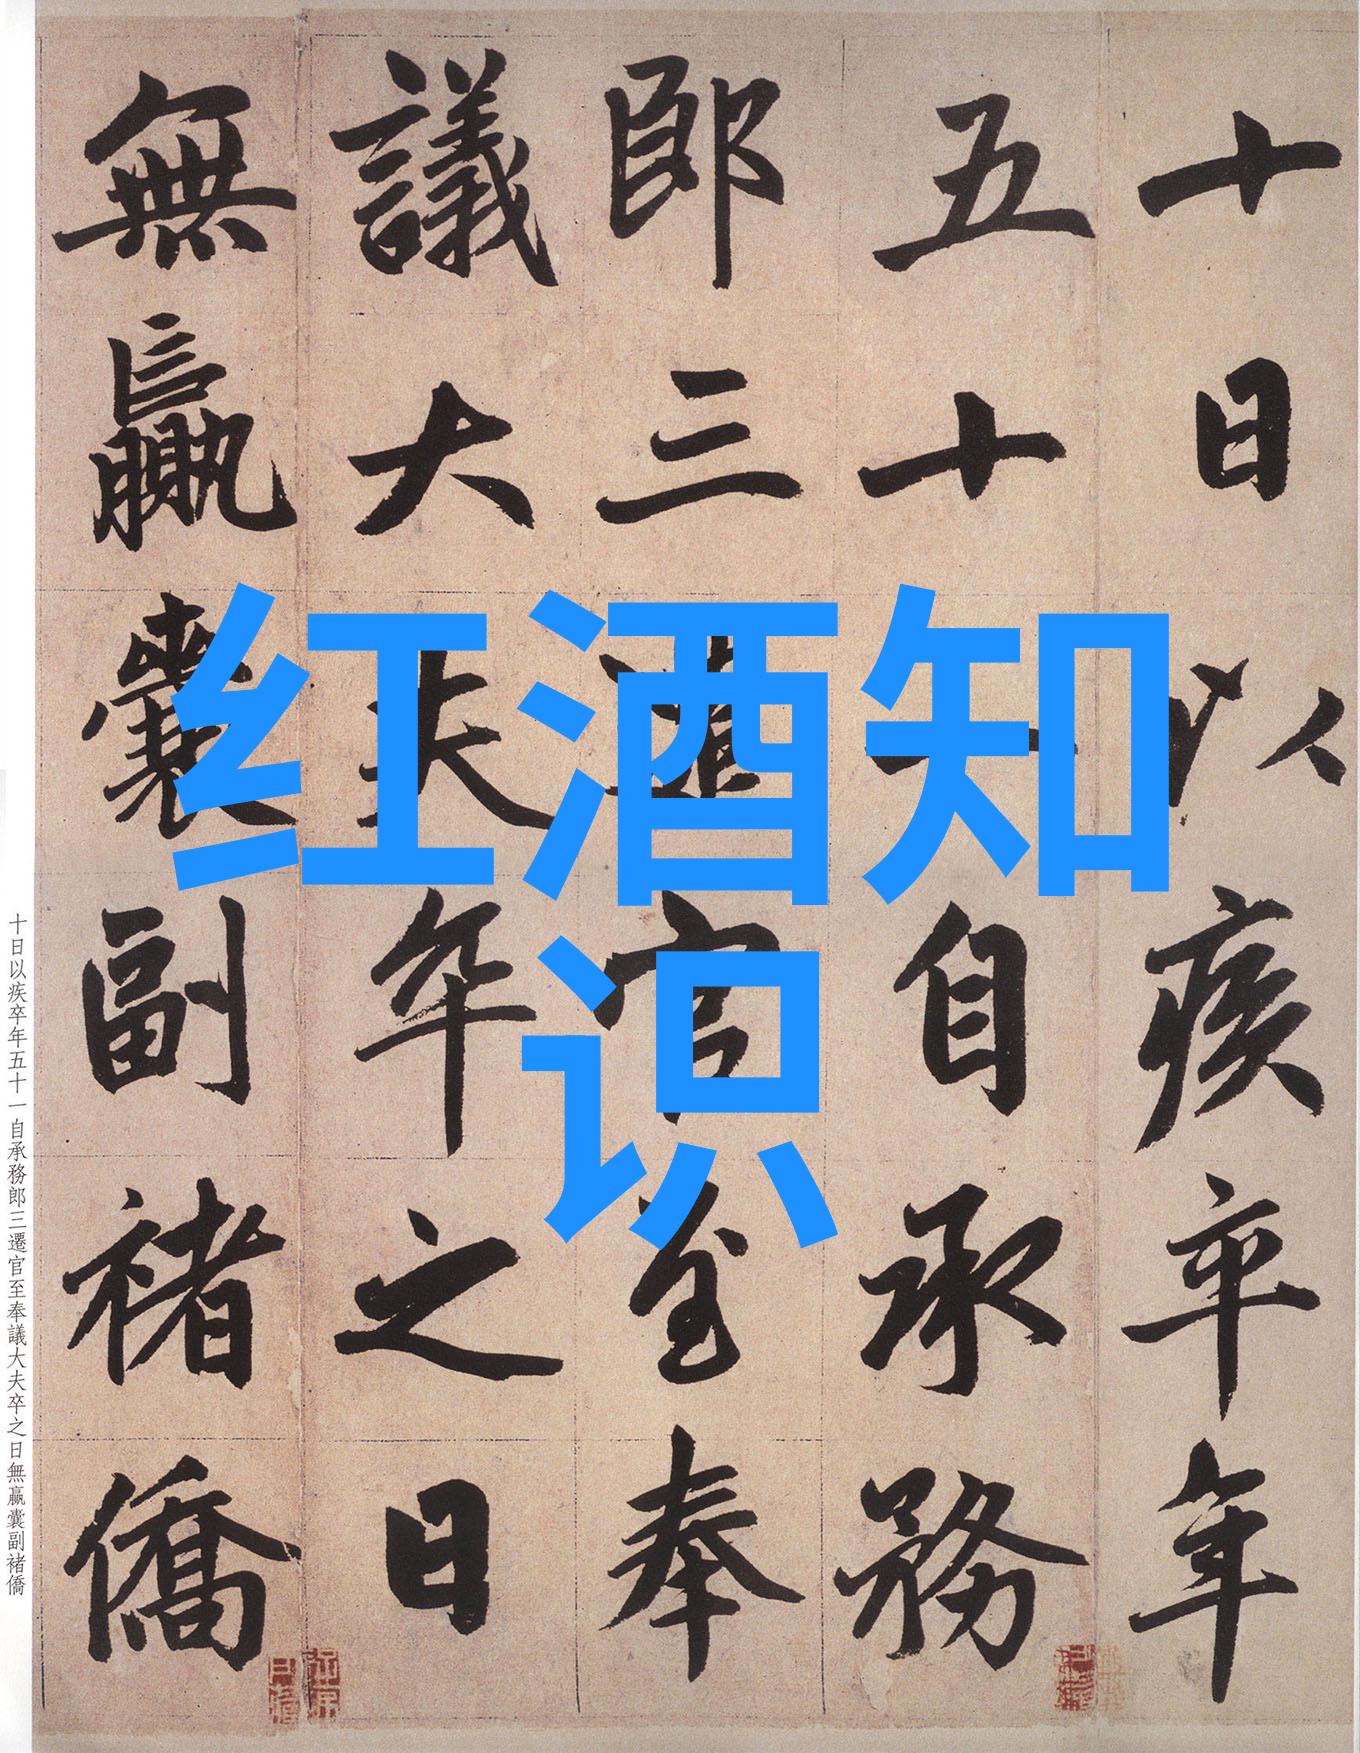 十日以疾卒年
五十一自承務
郎三遷官至奉
議大夫卒之日
無贏囊副褚僑
红酒知
识
十日以疾卒年五十一自承務郎三遷官至奉議大夫卒之日無贏囊副褚僑